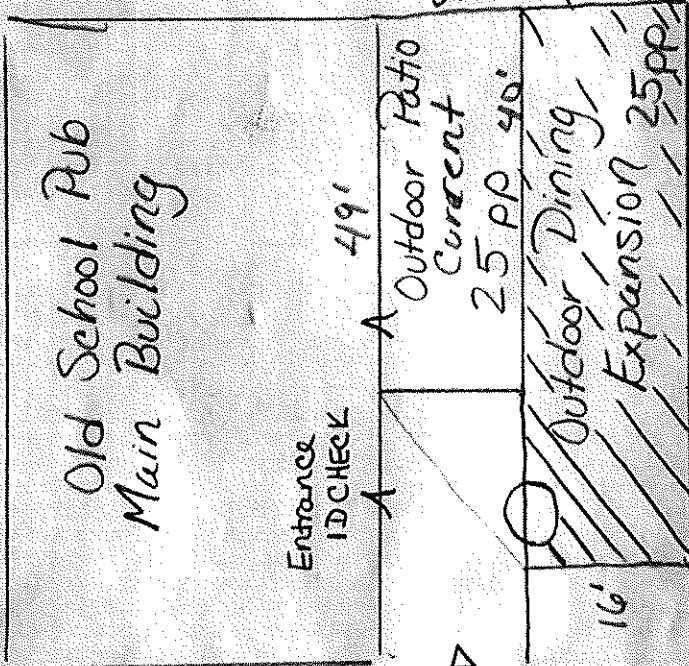 Old School Pub
Main Building
Entrance
ID CHECK
49'
Outdoor Patio
Current
25 pp 40'
Outdoor Dining
Expansion 25 pp
16'